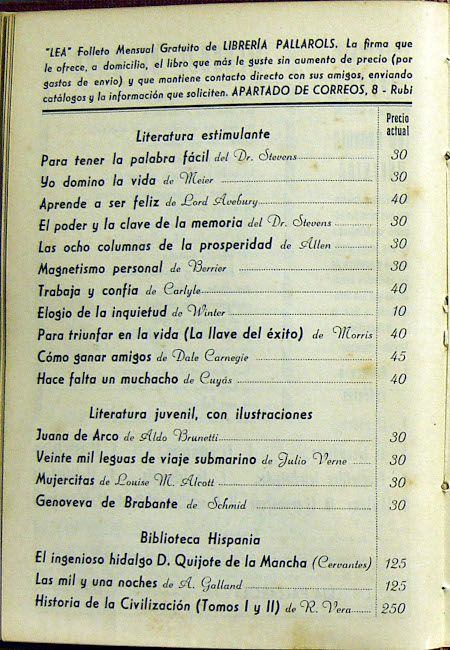 "LEA" Folleto Mensual Gratuito de LIBRERÍA PALLAROLS. La firma que
le ofrece, a domicilio, el libro que más le guste sin aumento de precio (por
gastos de envío) y que mantiene contacto directo con sus amigos, enviando
catálogos y la información que soliciten. APARTADO DE CORREOS, 8 - Rubí
Precio
actual
Literatura estimulante
Para tener la palabra fácil del Dr. Stevens 30
Yo domino la vida de Meier 30
Aprende a ser feliz de Lord Avebury 40
El poder y la clave de la memoria del Dr. Stevens 30
Las ocho columnas de la prosperidad de Allen 30
Magnetismo personal de Berrier 30
Trabaja y confía de Carlyle 40
Elogio de la inquietud de Winter 10
Para triunfar en la vida (La llave del éxito) de Morris 40
Cómo ganar amigos de Dale Carnegie 45
Hace falta un muchacho de Cuyás 40
Literatura juvenil, con ilustraciones
Juana de Arco de Aldo Brunetti 30
Veinte mil leguas de viaje submarino de Julio Verne 30
Mujercitas de Louise M. Alcott 30
Genoveva de Brabante de Schmid 30
Biblioteca Hispania
El ingenioso hidalgo D. Quijote de la Mancha (Cervantes) 125
Las mil y una noches de A. Galland 125
Historia de la Civilización (Tomos I y II) de R. Vera 250